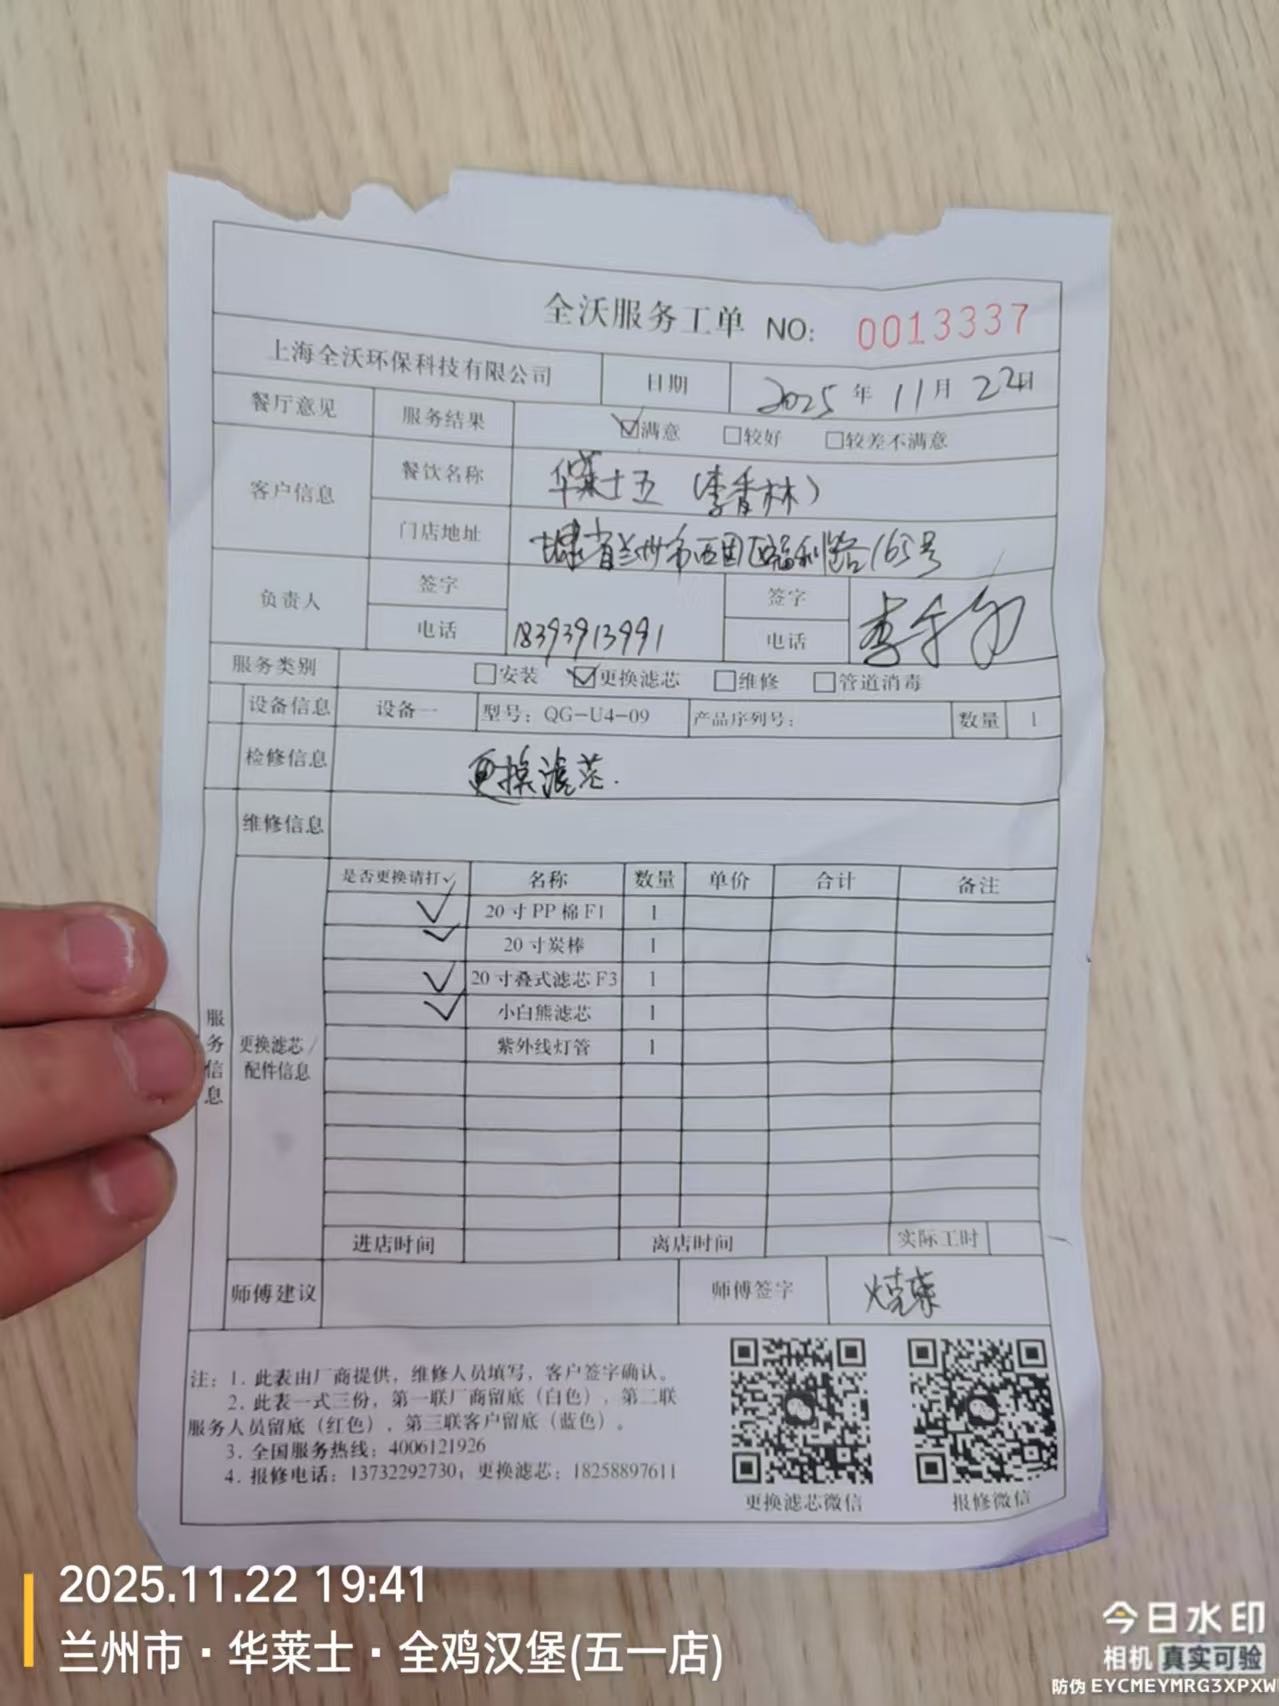 全沃服务工单 NO: 0013337
上海全沃环保科技有限公司 日期 2025年11月22日
餐厅意见 服务结果 ☑满意 □较好 □较差不满意
客户信息 餐饮名称 华莱士五(李香林)
门店地址 甘肃省兰州市西固区福利路165号
负责人 签字 签字
电话 18393913991 电话
服务类别 □安装 ☑更换滤芯 □维修 □管道消毒
设备信息 设备一 型号: QG-U4-09 产品序列号: 数量 1
检修信息 更换滤芯.
维修信息
是否更换请打✓ 名称 数量 单价 合计 备注
✓ 20寸PP棉F1 1
✓ 20寸炭棒 1
✓ 20寸叠式滤芯F3 1
✓ 小白熊滤芯 1
紫外线灯管 1
服务信息
更换滤芯/
配件信息
进店时间 离店时间 实际工时
师傅建议 师傅签字
注: 1. 此表由厂商提供, 维修人员填写, 客户签字确认。
2. 此表一式三份, 第一联厂商留底(白色), 第二联
服务人员留底(红色), 第三联客户留底(蓝色)。
3. 全国服务热线: 4006121926
4. 报修电话: 13732292730; 更换滤芯: 18258897611
更换滤芯微信 报修微信
2025.11.22 19:41
兰州市·华莱士·全鸡汉堡(五一店)
今日水印
相机 真实可验
防伪 EYCMEYMRG3XPXW